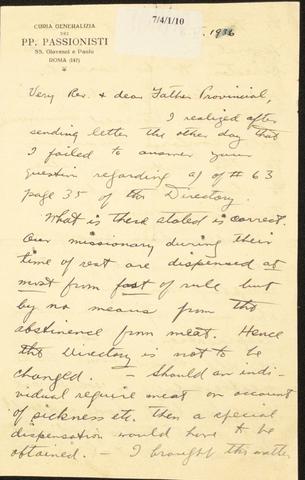 CURIA GENERALIZIA
DEI
PP. PASSIONISTI
SS. Giovanni e Paolo
ROMA (147)
7/4/1/10
1936
Very Rev. & dear Father Provincial,
I realized after
sending letter the other day that
I failed to answer your
question regarding of # 63
page 35 of the Directory.
What is there stated is correct.
Our missionary during their
time of rest are dispensed at
most from fast of rule but
by no means from the
abstinence from meat. Hence
the Directory is not to be
changed. – Should an indi-
vidual require meat on account
of sickness etc. then a special
dispensation would have to be
obtained. – I brought this matter